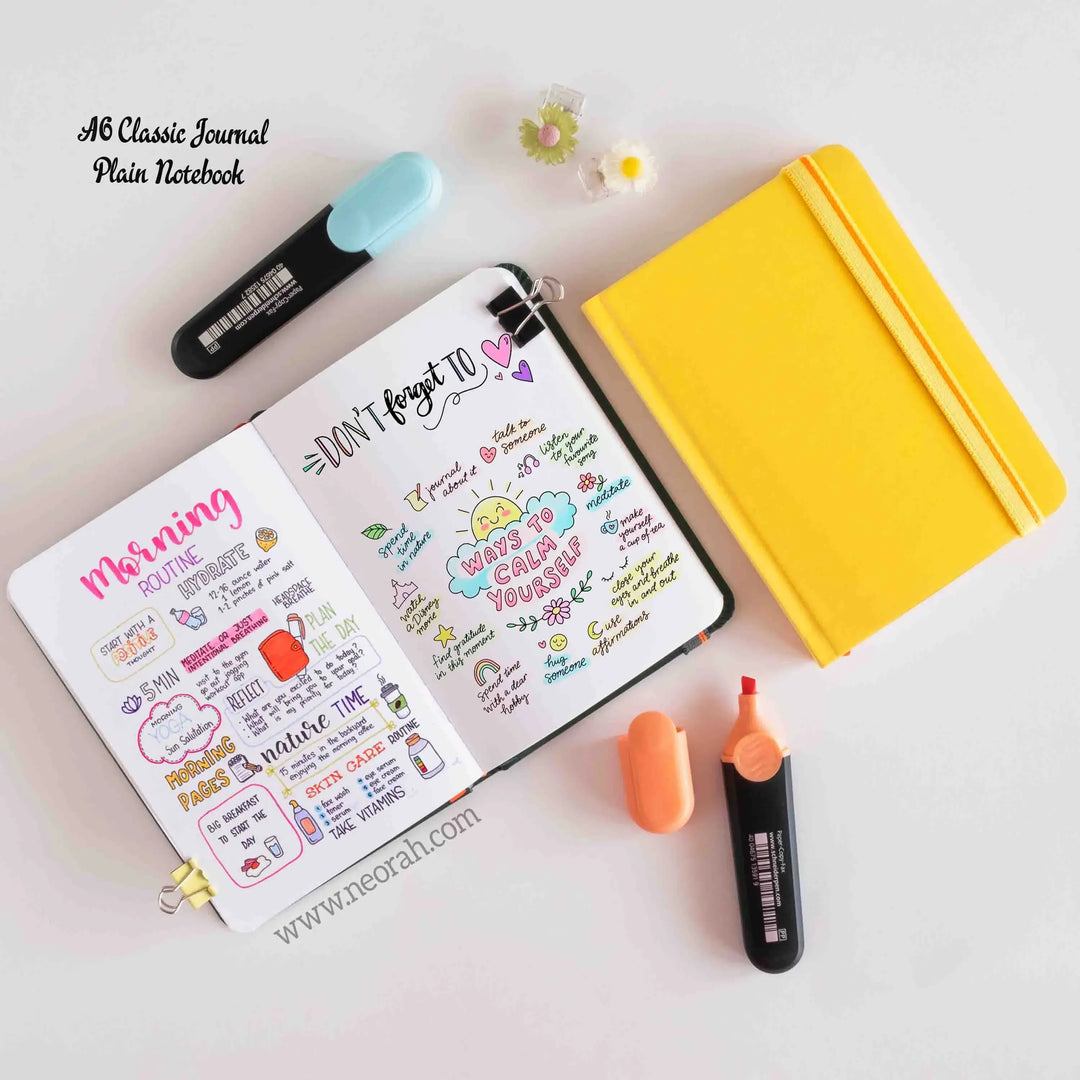 A6 Classic Journal
Plain Notebook
Paper-Copy-Fax
www.schneiderpen.com
40 04675 13582 7
PP
Morning
ROUTINE
HYDRATE
12-16 ounce water
1 lemon
1-2 pinches of pink salt
START WITH A
POSITIVE
THOUGHT
MEDITATE OR JUST
INTENTIONAL BREATHING
HEADSPACE
BREATHE
5 MIN
visit to the gym
go out jogging
workout app
PLAN
THE DAY
REFLECT
• What are you excited to do today?
• What will bring you to your goal?
• What is my priority for today?
MORNING
YOGA
Sun Salutation
nature TIME
15 minutes in the backyard
enjoying the morning coffee
MORNING
PAGES
SKIN CARE ROUTINE
1 face wash
2 toner
3 serum
4 eye serum
5 eye cream
6 face cream
BIG BREAKFAST
TO START THE
DAY
TAKE VITAMINS
DON'T forget TO
talk to
someone
listen
to your
favourite
song
journal
about it
meditate
spend
time
in nature
WAYS TO
CALM
YOURSELF
make
yourself
a cup of tea
watch
a Disney
movie
close your
eyes and breathe
in and out
find gratitude
in this moment
use
affirmations
hug
someone
spend time
with a dear
hobby
www.neorah.com
Paper-Copy-Fax
www.schneiderpen.com
40 04675 13591 9
PP